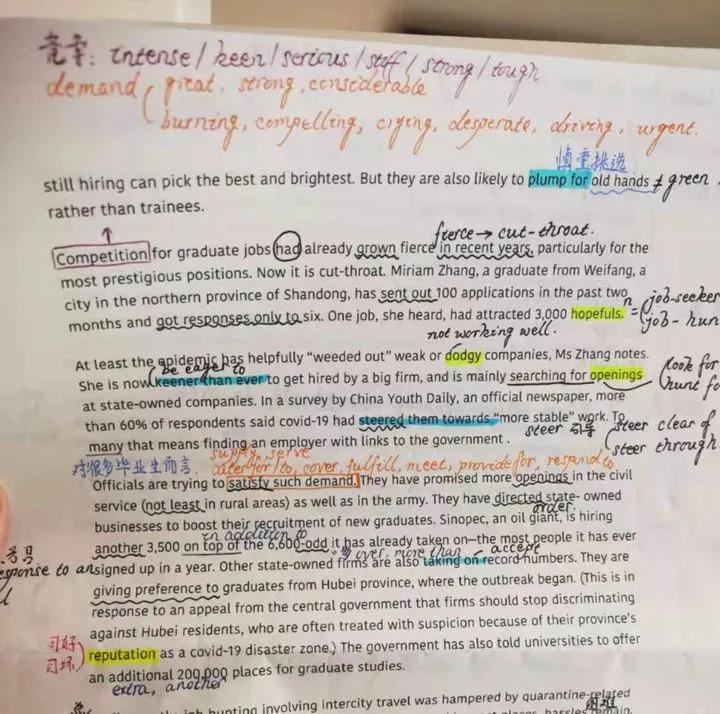 竞争: intense / keen / serious / stiff / strong / tough
demand ( great, strong, considerable
burning, compelling, crying, desperate, driving, urgent.
慎重挑选
still hiring can pick the best and brightest. But they are also likely to plump for old hands ≠ green
rather than trainees.
fierce → cut-throat.
Competition for graduate jobs had already grown fierce in recent years, particularly for the
most prestigious positions. Now it is cut-throat. Miriam Zhang, a graduate from Weifang, a
city in the northern province of Shandong, has sent out 100 applications in the past two
months and got responses only to six. One job, she heard, had attracted 3,000 hopefuls. n = ( job-seeker
job-hun
not working well.
At least the epidemic has helpfully "weeded out" weak or dodgy companies, Ms Zhang notes.
be eager to
She is now keener than ever to get hired by a big firm, and is mainly searching for openings ( look for
hunt fo
at state-owned companies. In a survey by China Youth Daily, an official newspaper, more
than 60% of respondents said covid-19 had steered them towards "more stable" work. To
many that means finding an employer with links to the government .
steer 引导 ( steer clear of
steer through
supply, serve
对很多毕业生而言. cater for/to, cover, fulfill, meet, provide for, respond to
Officials are trying to satisfy such demand. They have promised more openings in the civil
service (not least in rural areas) as well as in the army. They have directed state- owned
order.
businesses to boost their recruitment of new graduates. Sinopec, an oil giant, is hiring
in addition to
another 3,500 on top of the 6,600-odd it has already taken on—the most people it has ever
多 over, more than
accept
signed up in a year. Other state-owned firms are also taking on record numbers. They are
esponse to an
giving preference to graduates from Hubei province, where the outbreak began. (This is in
response to an appeal from the central government that firms should stop discriminating
against Hubei residents, who are often treated with suspicion because of their province's
reputation as a covid-19 disaster zone.) The government has also told universities to offer
an additional 200,000 places for graduate studies.
extra, another
困难
job hunting involving intercity travel was hampered by quarantine-related
places, hassles remain.